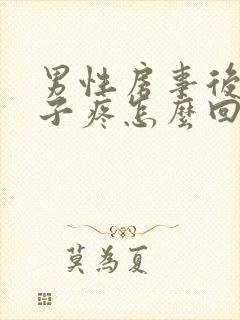 男性房事後
子疼怎麼回
莫為夏